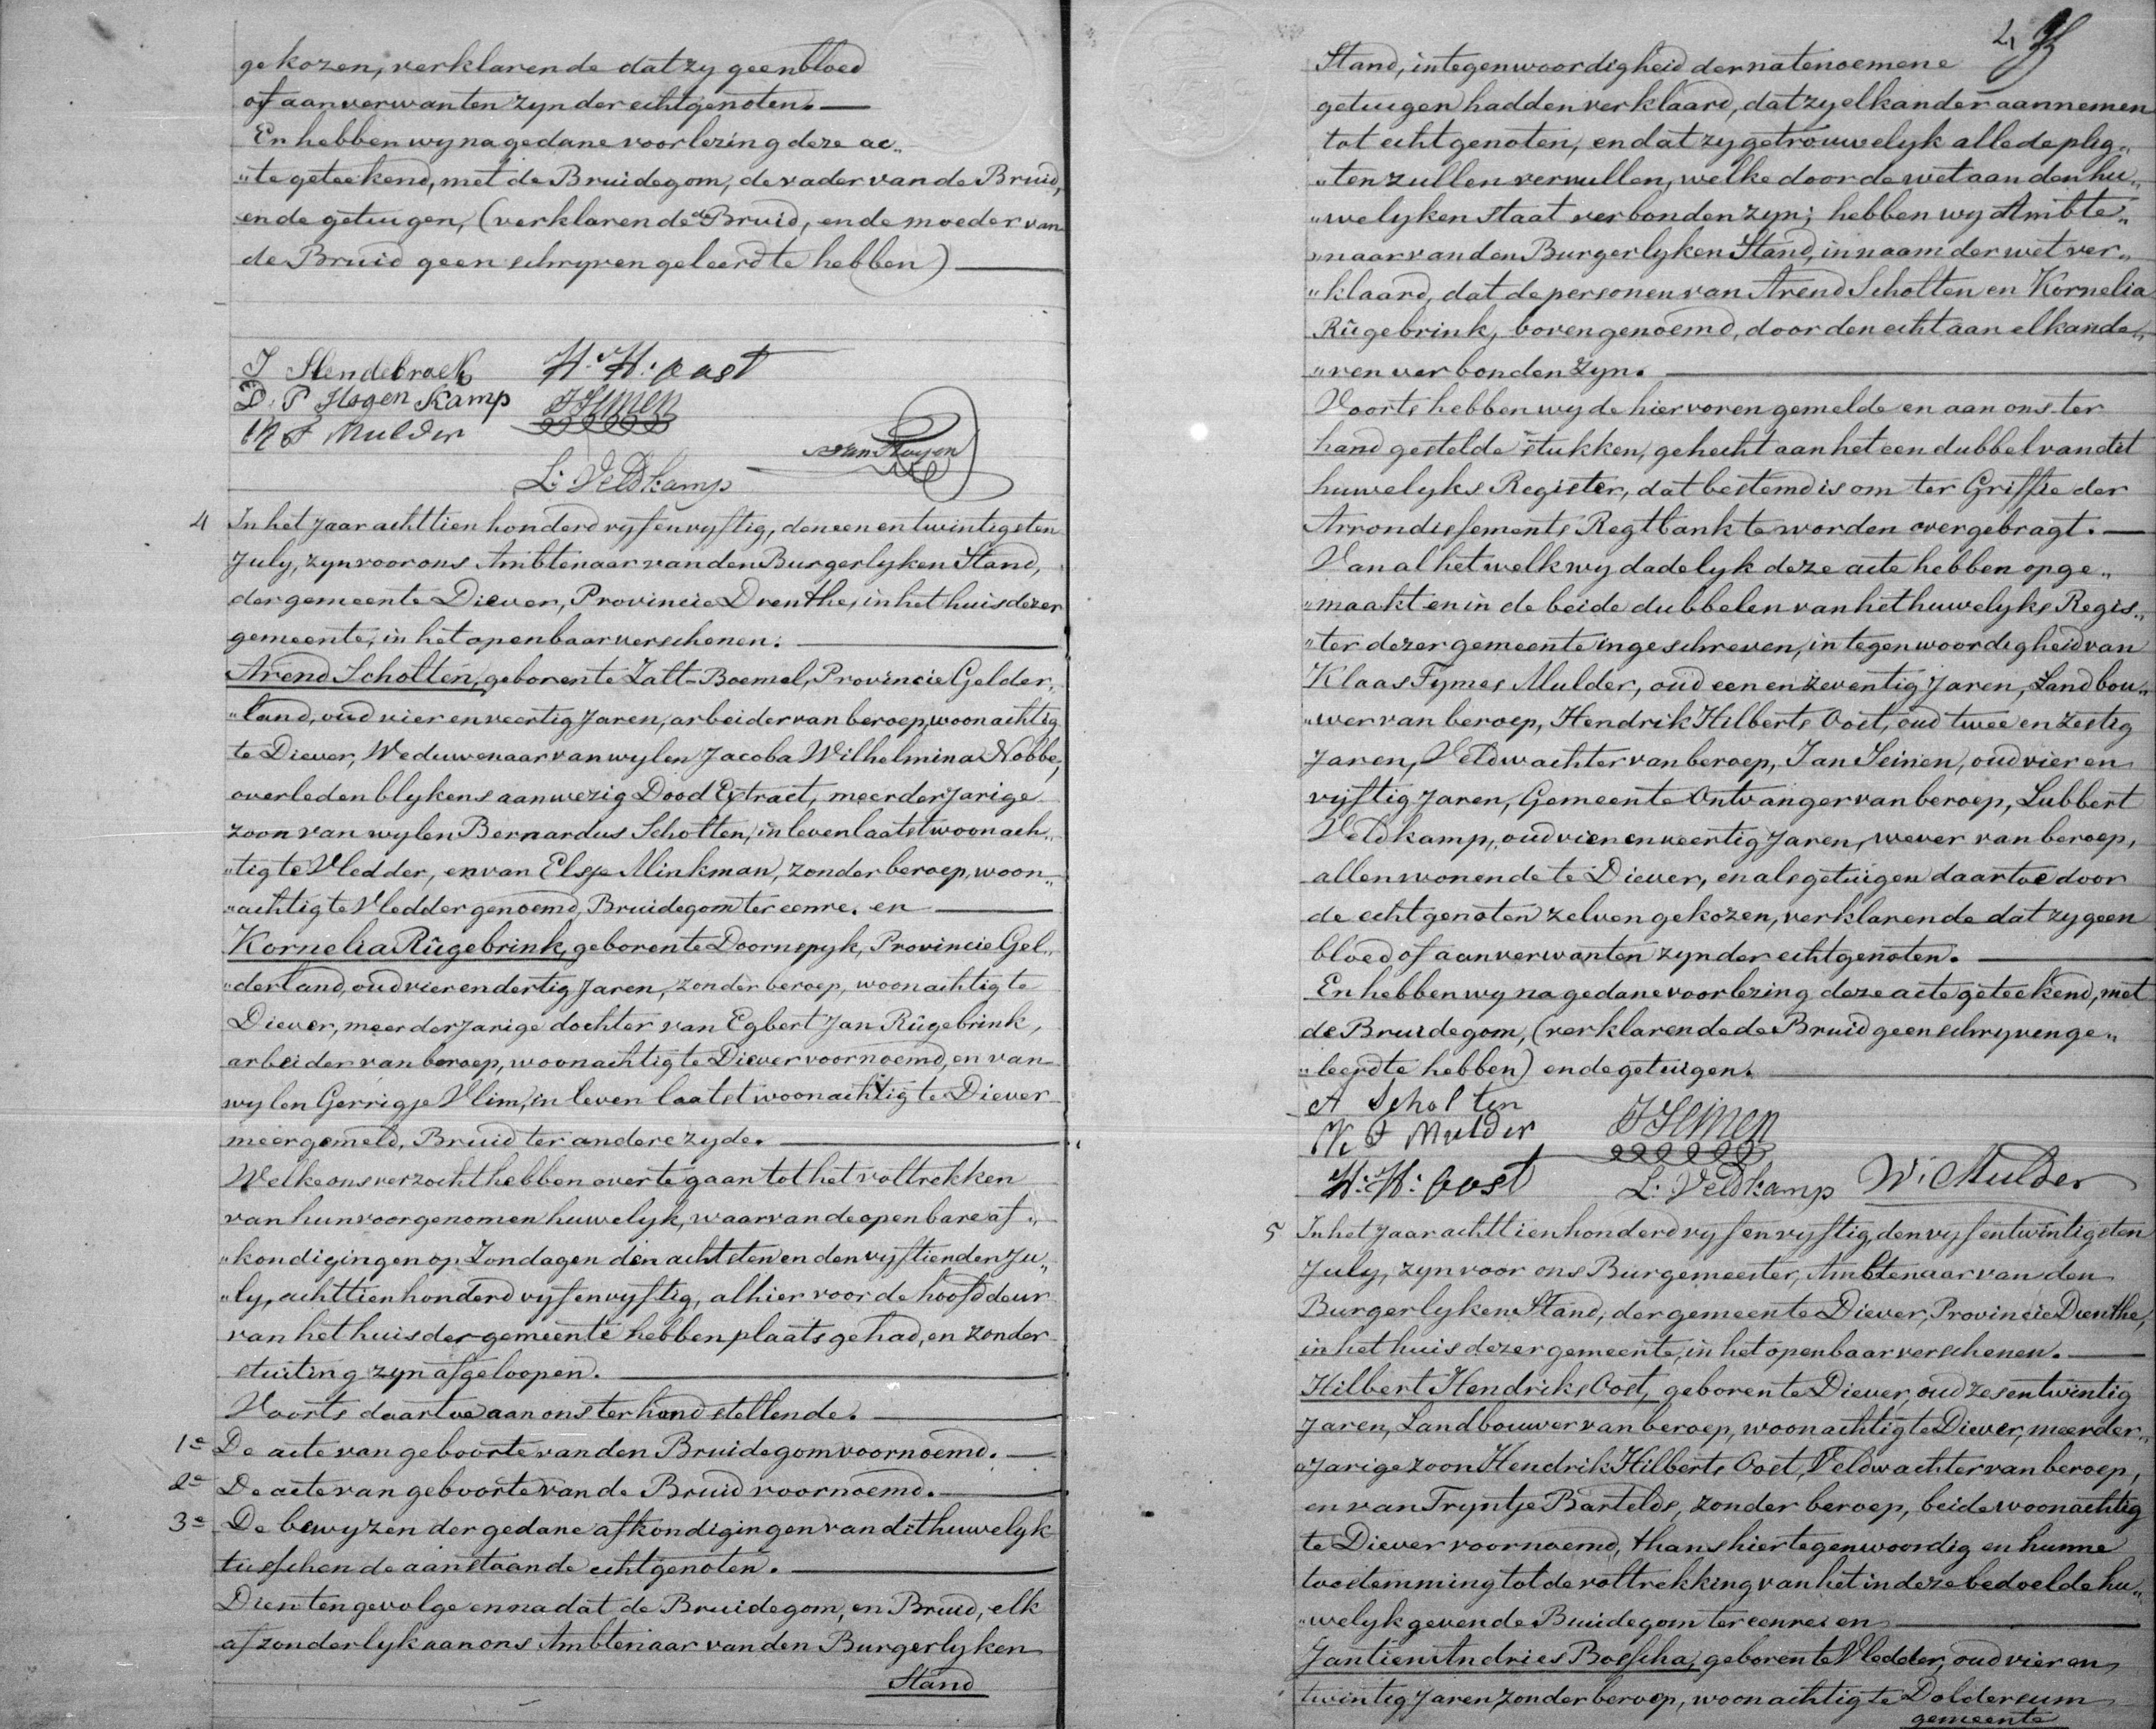 gekozen, verklarende dat zy geen bloed
of aanverwanten zyn der echtgenoten. —
En hebben wy na gedane voorlezing deze ac„
„te geteekend, met de Bruidegom, de vader van de Bruid,
en de getuigen, (verklarende de Bruid, en de moeder van
de Bruid geen schryven geleerd te hebben) —
J Slendebroek H: H: Oost
D. P Hogen Kamp J Seinen
K F Mulder
van Royen
L: Veldkamp
4 In het Jaar achttien honderd vyf en vyftig, den een en twintigsten
July, zyn voor ons Ambtenaar van den Burgerlyken Stand,
der gemeente Diever, Provincie Drenthe, in het huis dezer
gemeente, in het openbaar verschenen. —
Arend Scholten, geboren te Zalt-Boemel, Provincie Gelder„
„land, oud vier en veertig Jaren, arbeider van beroep, woonachtig
te Diever, Weduwenaar van wylen Jacoba Wilhelmina Nobbe,
overleden blykens aanwezig Dood Extract, meerderjarige
zoon van wylen Bernardus Scholten, in leven laatst woonach„
„tig te Vledder, en van Elsje Minkman, zonder beroep, woon„
„achtig te Vledder genoemd, Bruidegom ter eenre. en —
Kornelia Rûgebrink, geboren te Doornspyk, Provincie Gel„
„derland, oud vier en dertig Jaren, zonder beroep, woonachtig te
Diever, meerderjarige dochter van Egbert Jan Rûgebrink,
arbeider van beroep, woonachtig te Diever voornoemd, en van
wylen Gerrigje Vlim, in leven laatst woonachtig te Diever
meergemeld, Bruid ter andere zyde. —
Welke ons verzocht hebben over te gaan tot het voltrekken
van hun voorgenomen huwelyk, waarvan de openbare af„
„kondigingen op Zondagen den achtsten en den vyftienden Ju„
„ly, achttien honderd vyf en vyftig, alhier voor de hoofddeur
van het huis der gemeente hebben plaats gehad, en zonder
stuiting zyn afgeloopen. —
Voorts daartoe aan ons ter hand stellende. —
1e De acte van geboorte van den Bruidegom voornoemd. —
2e De acte van geboorte van de Bruid voornoemd. —
3e De bewyzen der gedane afkondigingen van dit huwelyk
tusschen de aanstaande echtgenoten. —
Dien ten gevolge en nadat de Bruidegom, en Bruid, elk
afzonderlyk aan ons Ambtenaar van den Burgerlyken
Stand
Stand, in tegenwoordigheid der na te noemene
getuigen hadden verklaard, dat zy elkander aannemen
tot echtgenoten, en dat zy getrouwelyk alle de plig„
„ten zullen vervullen, welke door de wet aan den hu„
„welyken staat verbonden zyn; hebben wy Ambte„
„naar van den Burgerlyken Stand, in naam der wet ver„
„klaard, dat de personen van Arend Scholten en Kornelia
Rûgebrink, bovengenoemd, door den echt aan elkande„
„ren verbonden zyn. —
Voorts hebben wy de hiervoren gemelde en aan ons ter
hand gestelde stukken, gehecht aan het een dubbel van dit
huwelyks Register, dat bestemd is om ter Griffie der
Arrondissements Regtbank te worden overgebragt. —
Van al het welk wy dadelyk deze acte hebben opge„
„maakt en in de beide dubbelen van het huwelyks Regis„
„ter dezer gemeente ingeschreven, in tegenwoordigheid van
Klaas Fymes Mulder, oud een en zeventig Jaren, Landbou„
„wer van beroep, Hendrik Hilberts Oost, oud twee en zestig
Jaren, Veldwachter van beroep, Jan Seinen, oud vier en
vyftig Jaren, Gemeente Ontvanger van beroep, Lubbert
Veldkamp, oud vier en veertig Jaren, wever van beroep,
allen wonende te Diever, en als getuigen daartoe door
de echtgenoten zelven gekozen, verklarende dat zy geen
bloed of aanverwanten zyn der echtgenoten. —
En hebben wy na gedane voorlezing deze acte geteekend, met
de Bruidegom, (verklarende de Bruid geen schryven ge„
„leerd te hebben) en de getuigen. —
A Scholten
K F Mulder J Seinen
H: H: Oost L: Veldkamp W: Mulder
5 In het Jaar achttien honderd vyf en vyftig, den vyf en twintigsten
July, zyn voor ons Burgemeester, Ambtenaar van den
Burgerlyken Stand, der gemeente Diever, Provincie Drenthe,
in het huis dezer gemeente, in het openbaar verschenen. —
Hilbert Hendriks Oost, geboren te Diever, oud zes en twintig
Jaren, Landbouwer van beroep, woonachtig te Diever, meerder„
„jarige zoon Hendrik Hilberts Oost, Veldwachter van beroep,
en van Tryntje Bartelds, zonder beroep, beide woonachtig
te Diever voornoemd, thans hier tegenwoordig en hunne
toestemming tot de voltrekking van het in deze bedoelde hu„
„welyk gevende Bruidegom ter eenre, en —
Jantien Andries Bosscha, geboren te Vledder, oud vier en
twintig Jaren, zonder beroep, woonachtig te Doldersum
gemeente